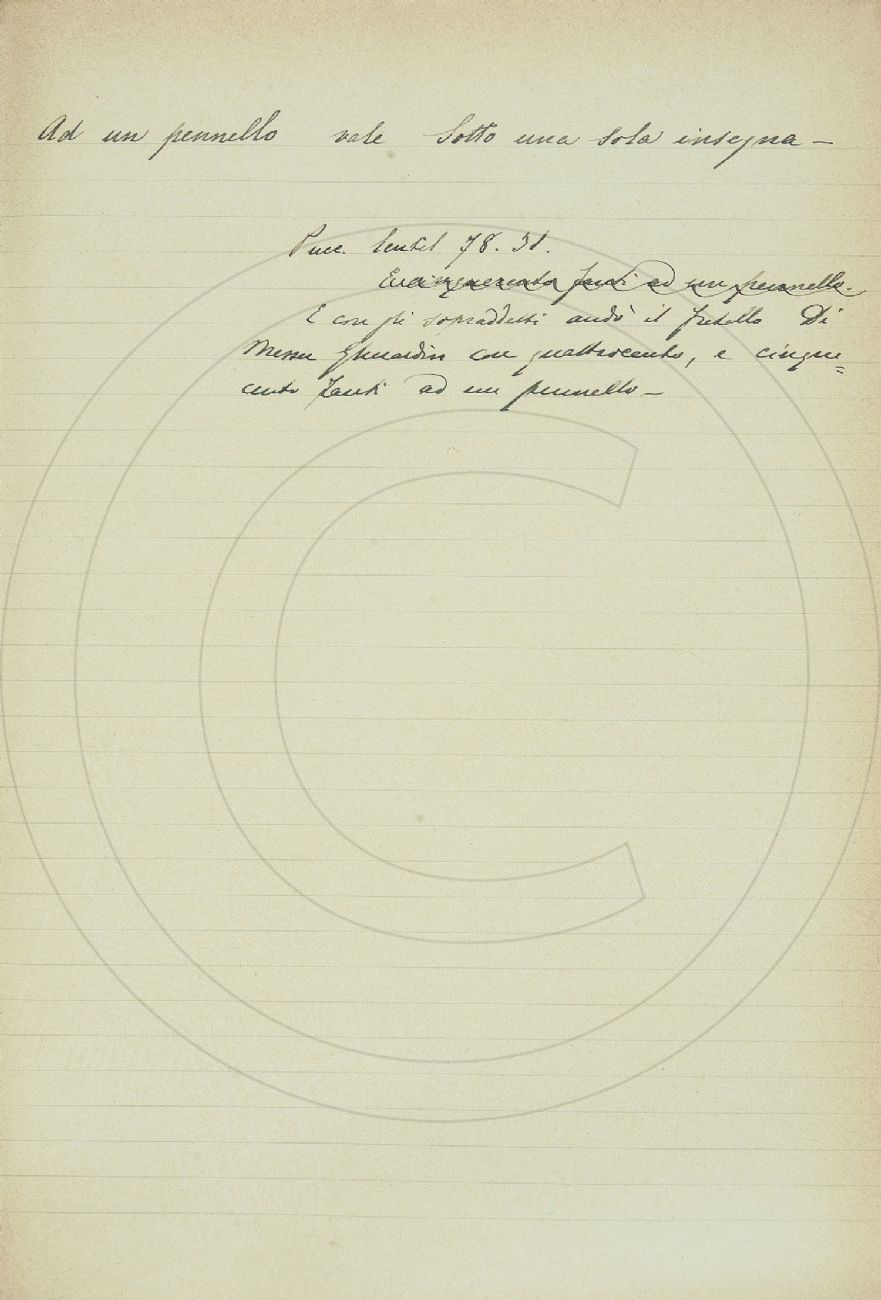 Ad un pennello vale Sotto una sola insegna —
Pucc. Centil 78. 31.
E cinquecento fanti ad un pennello.
E con gli sopraddetti andò il fratello Di
Messer Gherardin con quattrocento, e cinque=
cento fanti ad un pennello —